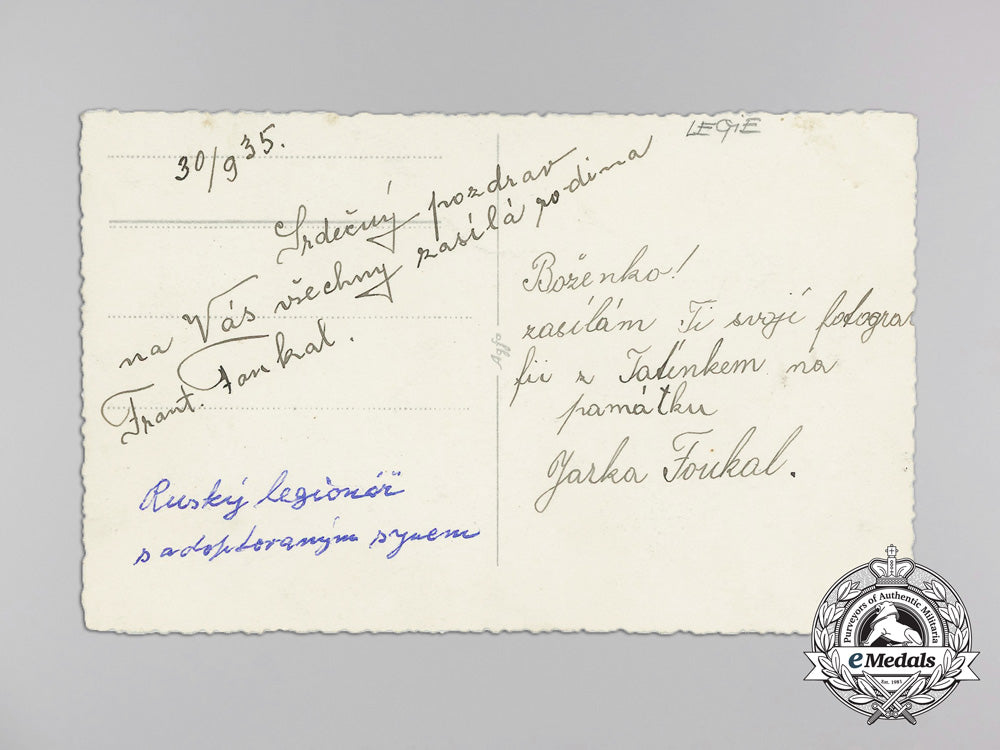 30/9 35.
LEGiE
Srdečný pozdrav
na Vás všechny zasílá rodina
Frant. Foukal.
Boženko!
zasílám Ti svojí fotogra
fii z Tatínkem na
památku
Jarka Foukal.
Agfa
Ruský legionář
s adoptovaným synem
Purveyors of Authentic Militaria
eMedals
Est. 1981